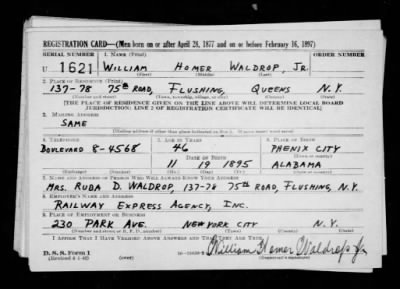 REGISTRATION CARD—(Men born on or after April 28, 1877 and on or before February 16, 1897)
SERIAL NUMBER 1. NAME (Print) ORDER NUMBER
U 1621 WILLIAM HOMER WALDROP, JR.
(First) (Middle) (Last)
2. PLACE OF RESIDENCE (Print)
137-78 75th ROAD, FLUSHING, QUEENS N.Y.
(Number and street) (Town, township, village, or city) (County) (State)
[THE PLACE OF RESIDENCE GIVEN ON THE LINE ABOVE WILL DETERMINE LOCAL BOARD
JURISDICTION; LINE 2 OF REGISTRATION CERTIFICATE WILL BE IDENTICAL]
3. MAILING ADDRESS
SAME
(Mailing address if other than place indicated on line 2. If same insert word same)
4. TELEPHONE 5. AGE IN YEARS 6. PLACE OF BIRTH
BOULEVARD 8-4568 46 PHENIX CITY
DATE OF BIRTH (Town or county)
11 19 1895 ALABAMA
(Exchange) (Number) (Mo.) (Day) (Yr.) (State or country)
7. NAME AND ADDRESS OF PERSON WHO WILL ALWAYS KNOW YOUR ADDRESS
MRS. RUBA D. WALDROP, 137-78 75TH ROAD, FLUSHING, N.Y.
8. EMPLOYER'S NAME AND ADDRESS
RAILWAY EXPRESS AGENCY, INC.
9. PLACE OF EMPLOYMENT OR BUSINESS
230 PARK AVE. NEW YORK CITY N.Y.
(Number and street or R. F. D. number) (Town) (County) (State)
I AFFIRM THAT I HAVE VERIFIED ABOVE ANSWERS AND THAT THEY ARE TRUE.
D. S. S. Form 1 William Homer Waldrop Jr
(Revised 4-1-42) (over) (Registrant's signature)